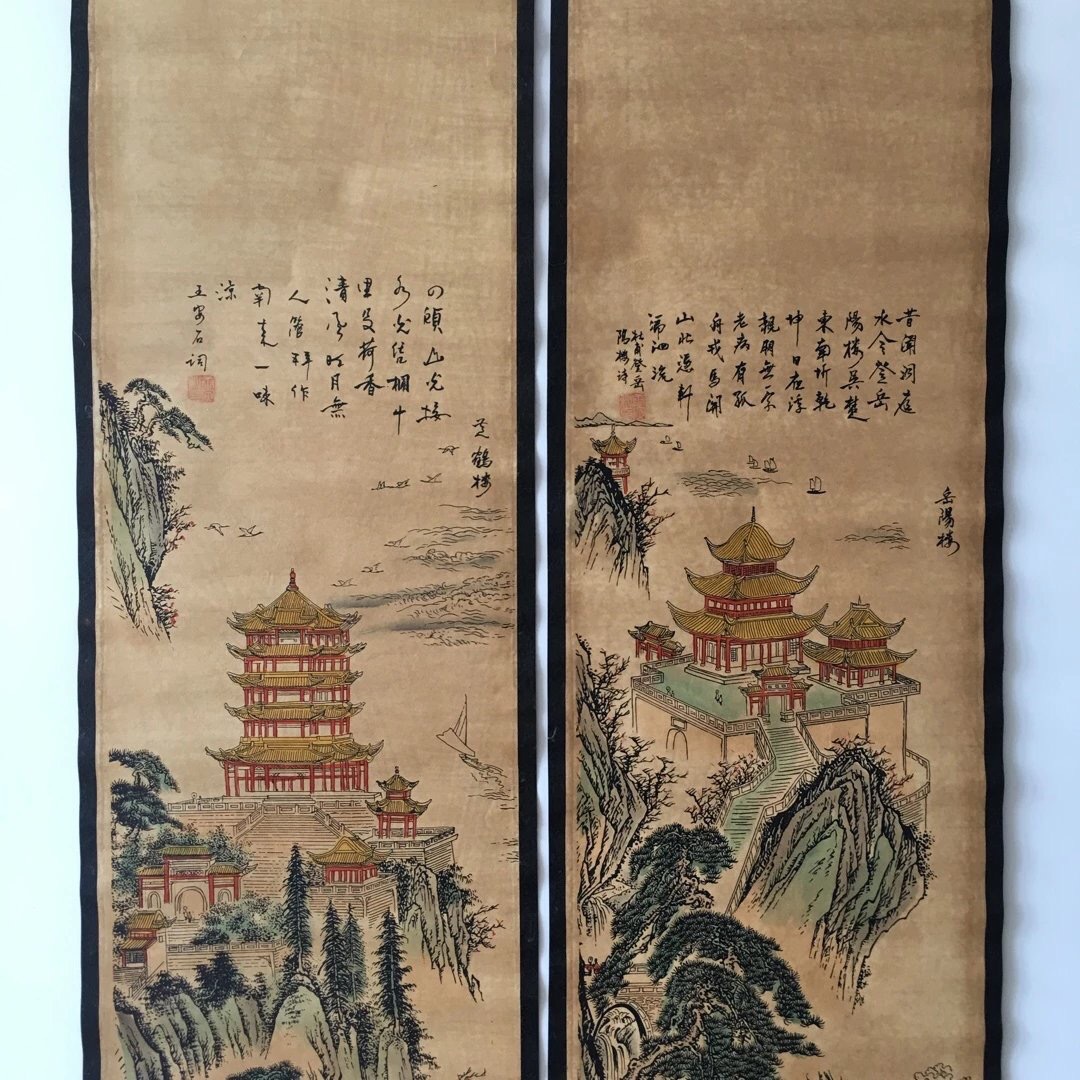 岳陽楼
昔闻洞庭
水今登岳
陽楼吴楚
東南坼乾
坤日夜浮
親朋無一字
老病有孤
舟戎馬関
山北凭軒
涕泗流
杜甫登岳
陽楼诗
黄鶴楼
四顧山光接
水光倚栏十
里芰荷香
清風明月無
人管并作
南来一味
凉
王安石词